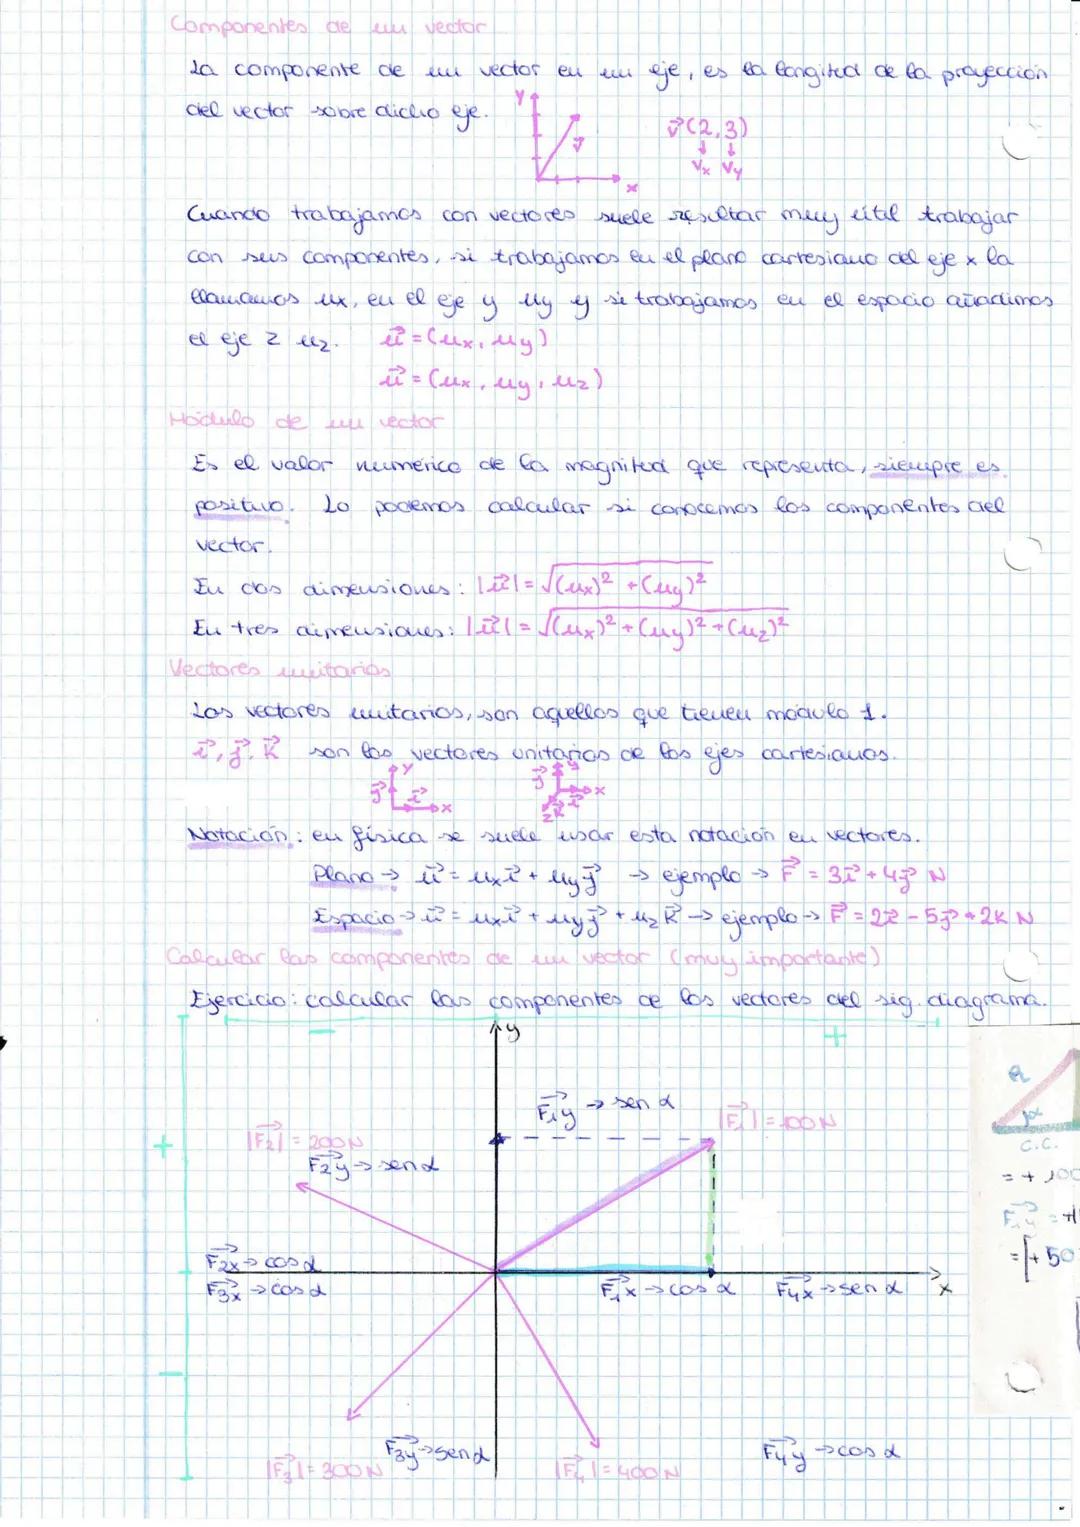 Componentes de un vector
La componente de un vector en un eje, es la longitud de la proyección
del vector sobre dicho eje.
y
v⃗
x
v⃗(2,3)
↓ ↓
Vx Vy
Cuando trabajamos con vectores suele resultar muy útil trabajar
con sus componentes, si trabajamos en el plano cartesiano del eje x la
llamamos ux, en el eje y uy y si trabajamos en el espacio añadimos
el eje z uz. u⃗ = (ux, uy)
u⃗ = (ux, uy, uz)
Módulo de un vector
Es el valor numérico de la magnitud que representa, siempre es
positivo. Lo podemos calcular si conocemos los componentes del
vector.
En dos dimensiones: |u⃗| = √(ux)² + (uy)²
En tres dimensiones: |u⃗| = √(ux)² + (uy)² + (uz)²
Vectores unitarios
Los vectores unitarios, son aquellos que tienen módulo 1.
i⃗, j⃗, k⃗ son los vectores unitarios de los ejes cartesianos.
y j⃗ i⃗ x
y j⃗ x i⃗ z k⃗
Notación: en física se suele usar esta notación en vectores.
Plano → u⃗ = ux i⃗ + uy j⃗ → ejemplo → F⃗ = 3i⃗ + 4j⃗ N
Espacio → u⃗ = ux i⃗ + uy j⃗ + uz k⃗ → ejemplo → F⃗ = 2i⃗ - 5j⃗ + 2k N
Calcular las componentes de un vector (muy importante)
Ejercicio: calcular las componentes de los vectores del sig. diagrama.
− +
y
F₁y → sen α
|F₁| = 100N
+
|F₂| = 200N
F₂y → sen α
α
C.C.
= + 100
F₁y = +1
= [+ 50
F₂x → cos α
F₃x → cos α
F₁x → cos α
F₄x → sen α
x
−
F₃y → sen α
F₄y → cos α
|F₃| = 300N
|F₄| = 400N